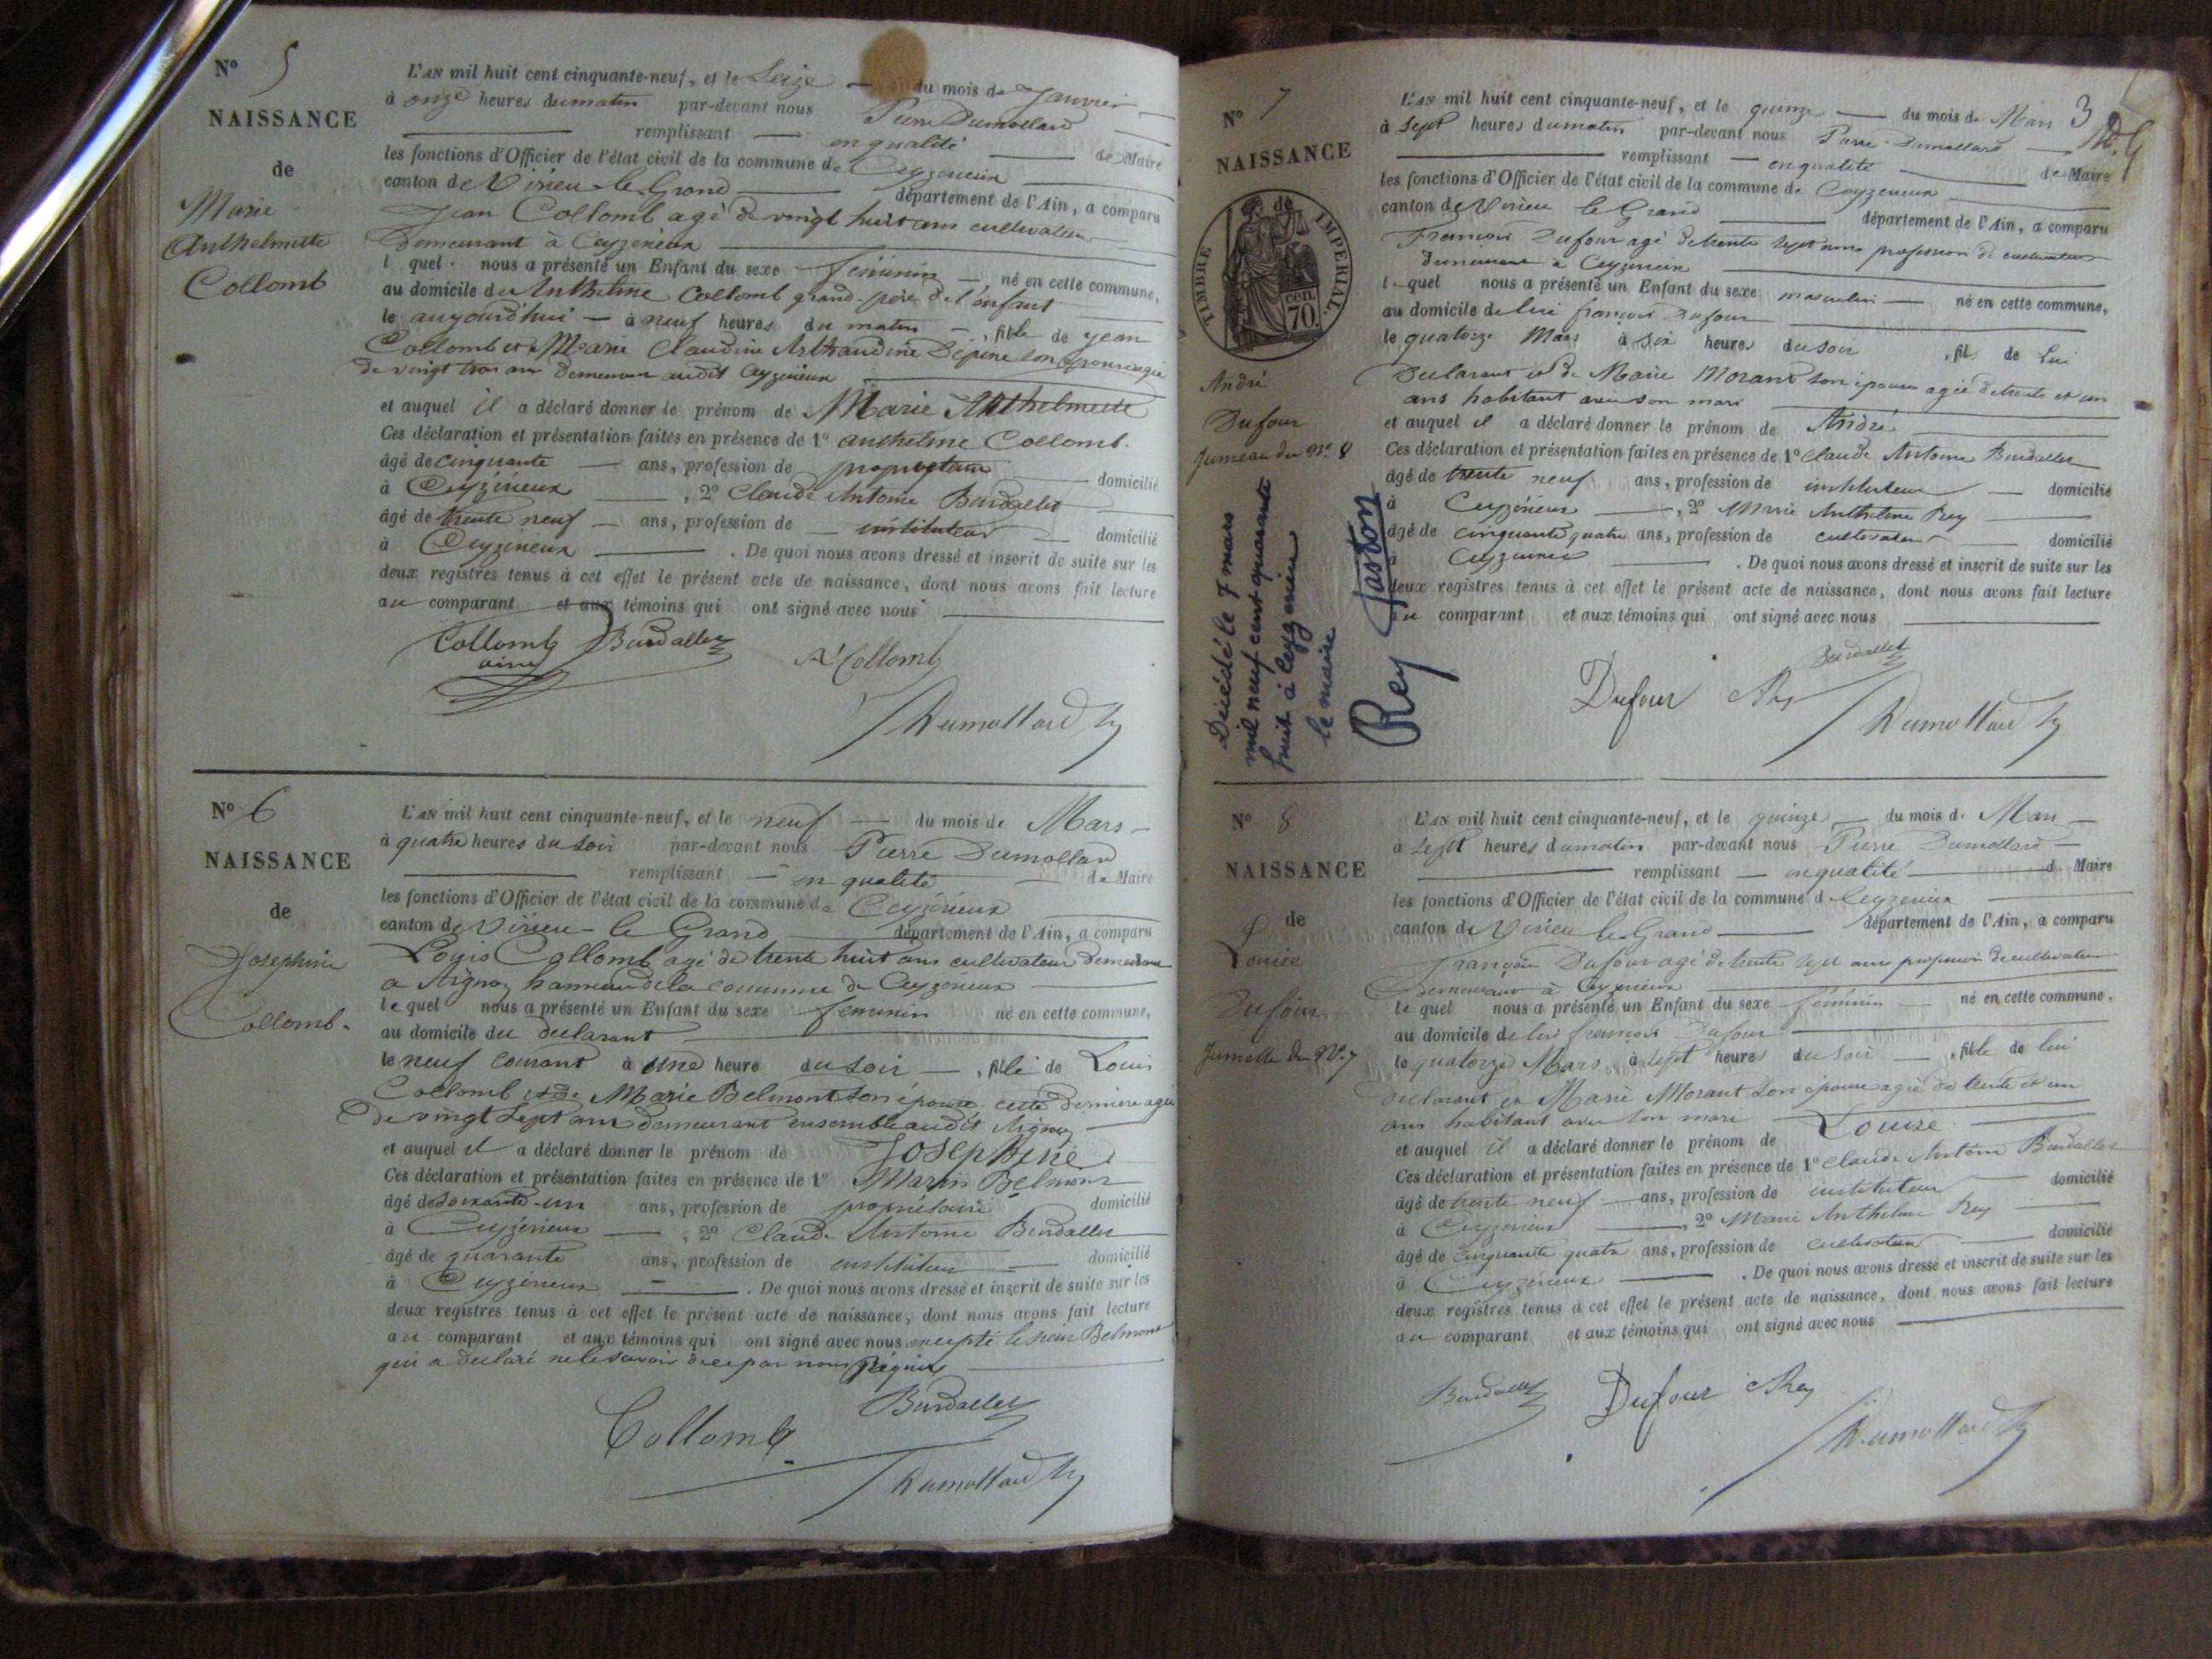 N° 5
NAISSANCE
de
Marie
Anthelmette
Collomb
L'AN mil huit cent cinquante-neuf, et le Seize — du mois de Janvier
à onze heures du matin par-devant nous Pierre Dumollard
remplissant — en qualité — de Maire
les fonctions d'Officier de l'état civil de la commune de Ceyzerieux
canton de Virieu-le-Grand — département de l'Ain, a comparu
Jean Collomb agé de vingt huit ans cultivateur
demeurant à Ceyzerieux
lequel nous a présenté un Enfant du sexe féminin — né en cette commune,
au domicile de Anthelme Collomb grand-père de l'enfant
le aujourd'hui — à neuf heures du matin —, fille de Jean
Collomb et Marie Claudine Dépine son épouse agée
de vingt trois ans demeurant audit Ceyzerieux
et auquel il a déclaré donner le prénom de Marie Anthelmette
Ces déclaration et présentation faites en présence de 1° anthelme Collomb.
âgé de cinquante — ans, profession de propriétaire domicilié
à Ceyzerieux —, 2° Claude Antoine Burdallet
âgé de trente neuf — ans, profession de — instituteur — domicilié
à Ceyzerieux — . De quoi nous avons dressé et inscrit de suite sur les
deux registres tenus à cet effet le présent acte de naissance, dont nous avons fait lecture
au comparant et aux témoins qui ont signé avec nous
Collomb Burdallet A Collomb
Dumollard
N° 6
NAISSANCE
de
Josephine
Collomb.
L'AN mil huit cent cinquante-neuf, et le neuf — du mois de Mars —
à quatre heures du soir par-devant nous Pierre Dumollard
remplissant — en qualité — de Maire
les fonctions d'Officier de l'état civil de la commune de Ceyzérieux
canton de Virieu-le Grand — département de l'Ain, a comparu
Louis Collomb agé de trente huit ans cultivateur demeurant
a Aignoz hameau de la commune de Ceyzerieux
lequel nous a présenté un Enfant du sexe feminin né en cette commune,
au domicile du declarant
le neuf courant à une heure du soir —, fille de Louis
Collomb et de Marie Belmont son épouse cette dernière agée
de vingt sept ans demeurant ensemble audit Aignoz
et auquel il a déclaré donner le prénom de Josephine
Ces déclaration et présentation faites en présence de 1° Martin Belmont
âgé de soixante-un ans, profession de propriétaire domicilié
à Ceyzérieux —, 2° Claude Antoine Burdallet
âgé de quarante ans, profession de instituteur — domicilié
à Ceyzérieux — . De quoi nous avons dressé et inscrit de suite sur les
deux registres tenus à cet effet le présent acte de naissance, dont nous avons fait lecture
au comparant et aux témoins qui ont signé avec nous excepté le sieur Belmont
qui a declaré ne le savoir de ce par nous requis
Burdallet
Collomb
Dumollard
3
N° 7
NAISSANCE
de
TIMBRE IMPERIAL.
cen. 70
André
Dufour
Jumeau du N° 8
Décédé le 7 mars
mil neuf cent quarante
huit à Ceyzerieu
le maire
Rey Gaston
L'AN mil huit cent cinquante-neuf, et le quinze — du mois de Mars
à sept heures du matin par-devant nous Pierre Dumollard —
remplissant — en qualité — de Maire
les fonctions d'Officier de l'état civil de la commune de Ceyzerieux
canton de Virieu le Grand — département de l'Ain, a comparu
François Dufour agé de trente sept ans profession de cultivateur
demeurant à Ceyzerieux
lequel nous a présenté un Enfant du sexe masculin — né en cette commune,
au domicile de lui françois Dufour
le quatorze Mars à six heures du soir, fils de lui
Declarant et de Marie Morant son épouse agée de trente et un
ans habitant avec son mari
et auquel il a déclaré donner le prénom de André
Ces déclaration et présentation faites en présence de 1° Claude Antoine Burdallet
âgé de trente neuf ans, profession de instituteur — domicilié
à Ceyzérieux —, 2° Marie Anthelme Rey
âgé de cinquante quatre ans, profession de cultivateur — domicilié
à Ceyzerieux — . De quoi nous avons dressé et inscrit de suite sur les
deux registres tenus à cet effet le présent acte de naissance, dont nous avons fait lecture
au comparant et aux témoins qui ont signé avec nous
Burdallet
Dufour Rey
Dumollard
N° 8
NAISSANCE
de
Louise
Dufour
Jumelle du N° 7
L'AN mil huit cent cinquante-neuf, et le quinze — du mois de Mars —
à sept heures du matin par-devant nous Pierre Dumollard —
remplissant — en qualité — de Maire
les fonctions d'Officier de l'état civil de la commune de Ceyzerieux
canton de Virieu le Grand — département de l'Ain, a comparu
François Dufour agé de trente sept ans profession de cultivateur
demeurant à Ceyzerieux
lequel nous a présenté un Enfant du sexe féminin — né en cette commune.
au domicile de lui françois Dufour
le quatorze Mars à sept heures du soir —, fille de lui
Declarant et Marie Morant son épouse agée de trente et un
ans habitant avec son mari
et auquel il a déclaré donner le prénom de Louise
Ces déclaration et présentation faites en présence de 1° Claude Antoine Burdallet
âgé de trente neuf — ans, profession de instituteur — domicilié
à Ceyzerieux —, 2° Marie Anthelme Rey
âgé de cinquante quatre ans, profession de cultivateur — domicilié
à Ceyzérieux — . De quoi nous avons dressé et inscrit de suite sur les
deux registres tenus à cet effet le présent acte de naissance, dont nous avons fait lecture
au comparant et aux témoins qui ont signé avec nous
Burdallet Dufour Rey
Dumollard